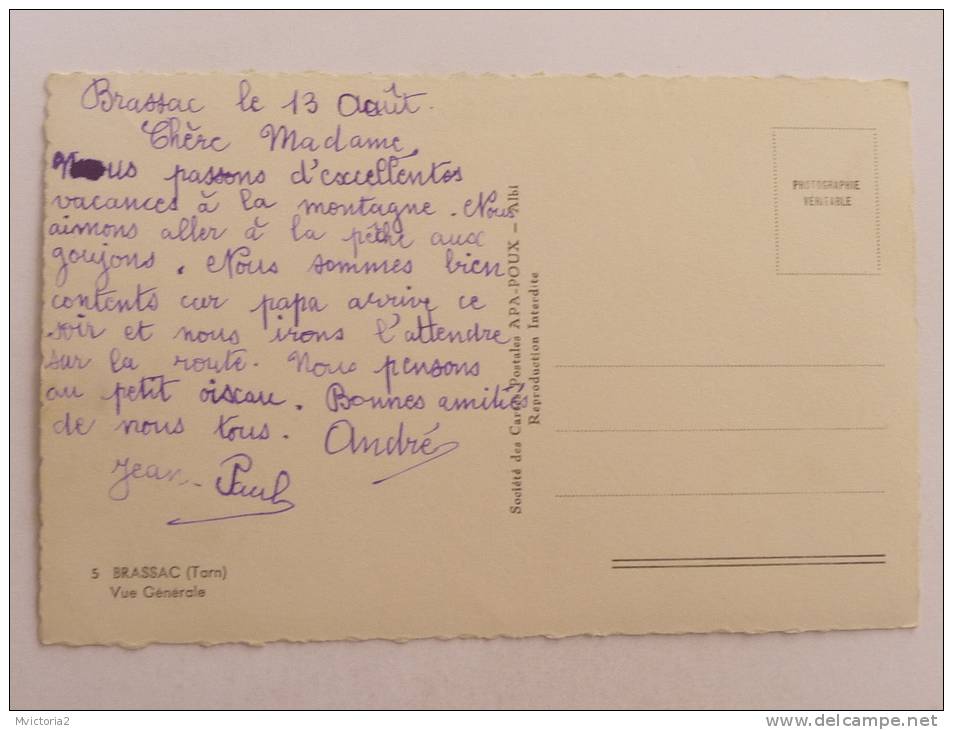 Brassac le 13 Août.
Chère Madame,
Nous passons d'excellentes
vacances à la montagne. Nous
aimons aller à la pêche aux
goujons. Nous sommes bien
contents car papa arrive ce
soir et nous irons l'attendre
sur la route. Nous pensons
au petit oiseau. Bonnes amitiés
de nous tous. André
Jean-Paul
5 BRASSAC (Tarn)
Vue Générale
Société des Cartes Postales APA-POUX - Albi
Reproduction Interdite
PHOTOGRAPHIE
VERITABLE
Mvictoria2
www.delcampe.net